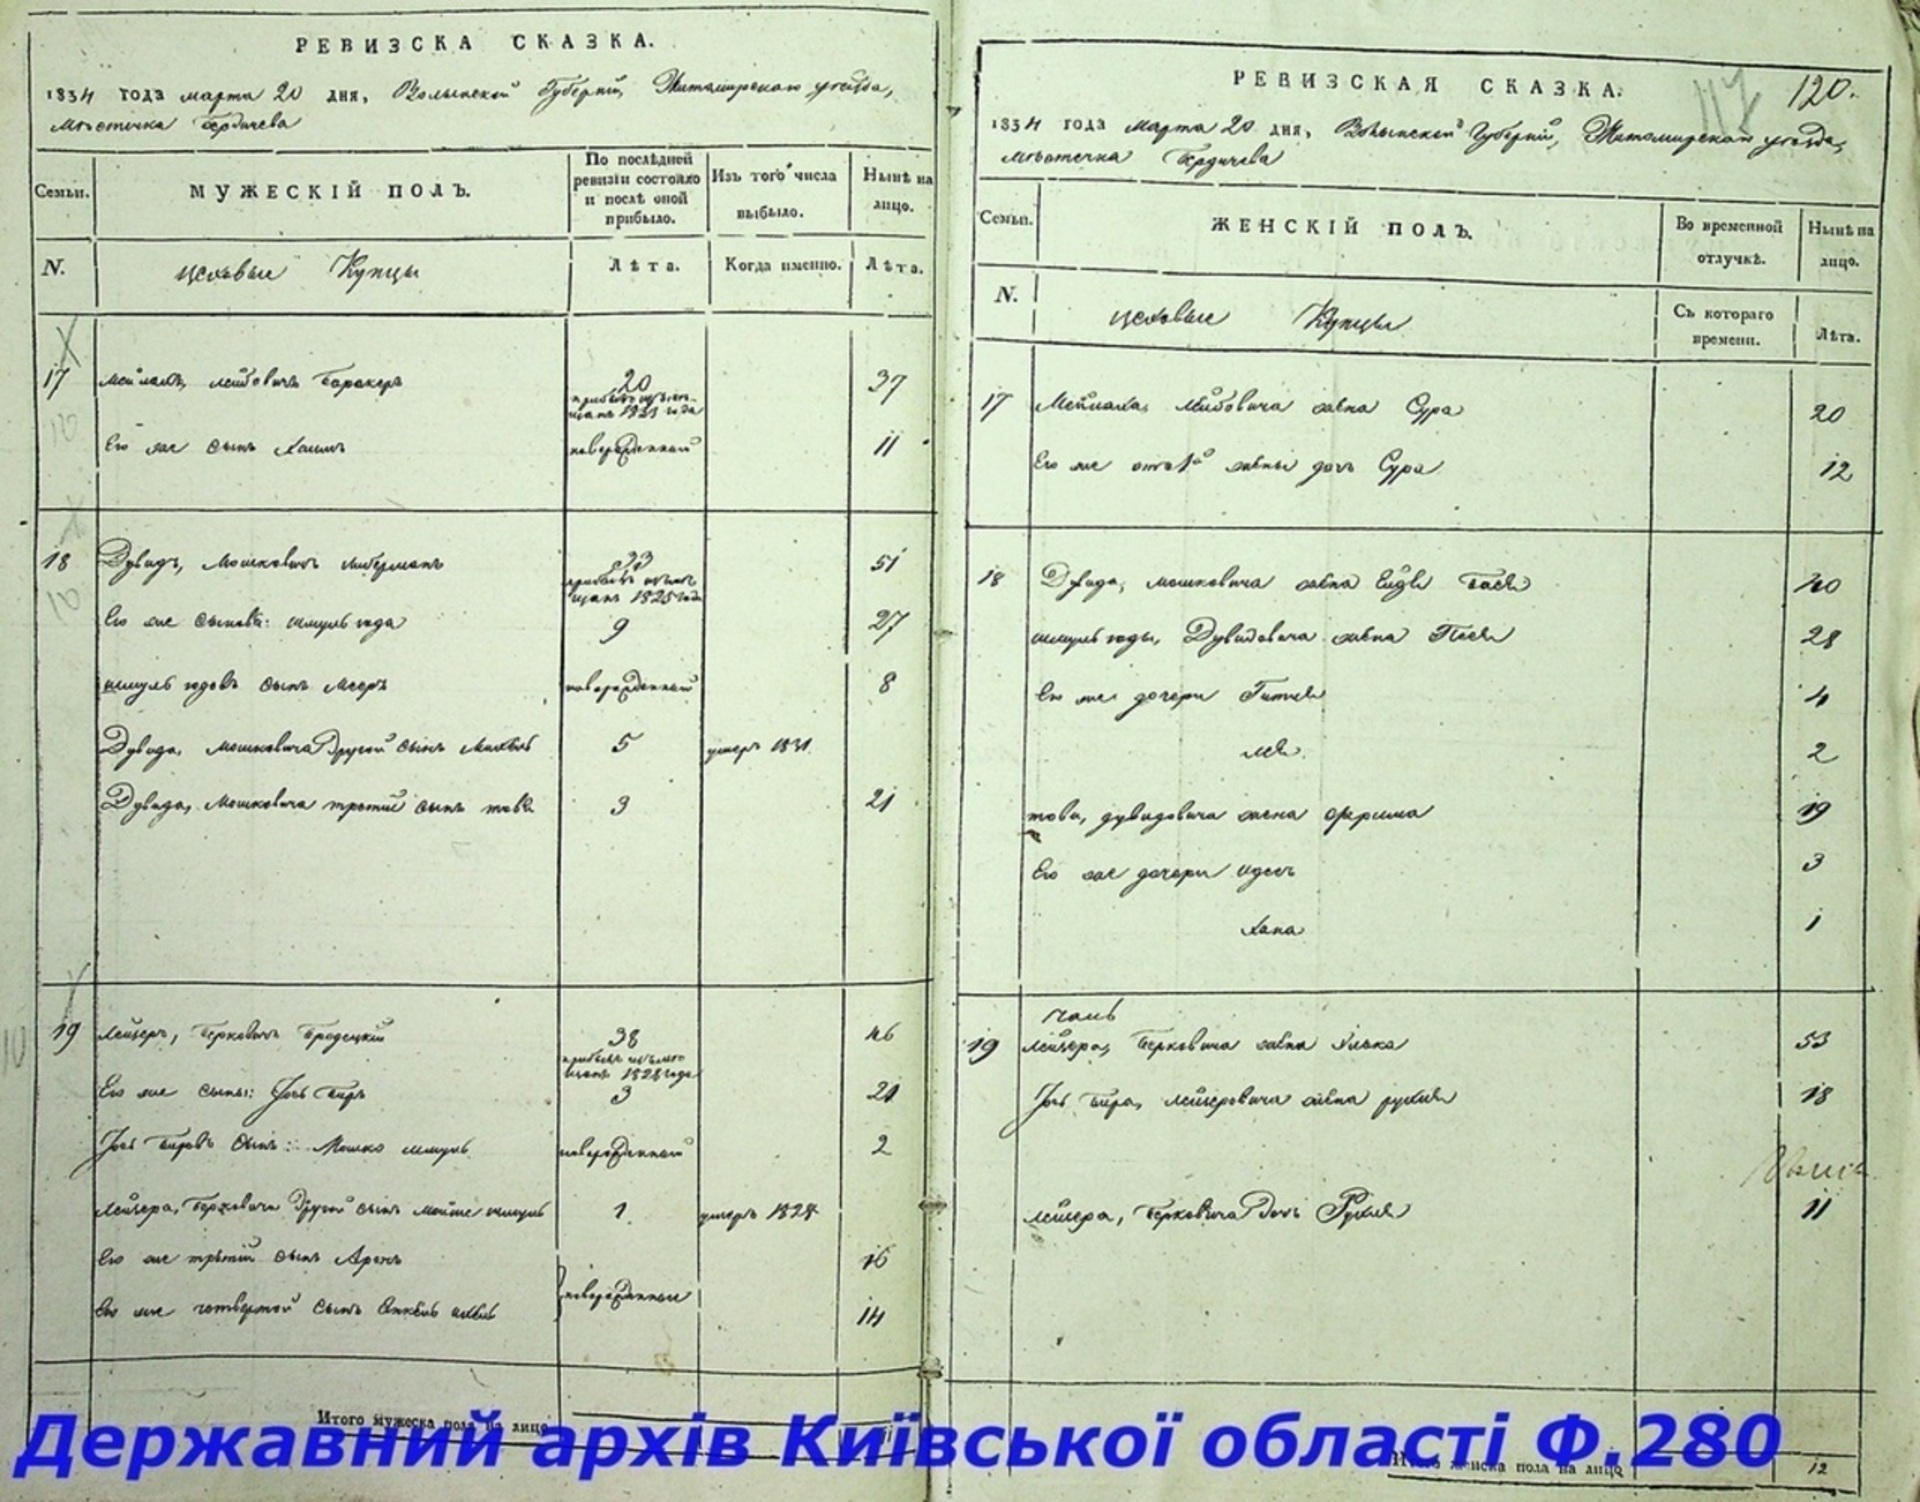 РЕВИЗСКА СКАЗКА.
1834 ГОДА марта 20 ДНЯ, Волынской Губерніи, Житомирскаго уезда,
Мѣстечка Бердичева
Семьи.
МУЖЕСКІЙ ПОЛЪ.
По послѣдней
ревизіи состояло
и послѣ оной
прибыло.
Изъ того числа
выбыло.
Нынѣ на
лицо.
N.
Купцы
Лѣта.
Когда именно.
Лѣта.
17
лейбовичъ
20
1823 года
37
Его же сынъ Хаимъ
новорожденный
11
18
Дувидъ, Мошковичъ Либерманъ
33
1825 года
51
Его же сыновья:
9
27
сынъ Мееръ
новорожденный
8
Дувида, Мошковича Другой сынъ
5
умеръ 1831
Дувида, Мошковича третий сынъ това
3
21
19
Лейзеръ, Берковичъ Бродецкий
38
1828 года
46
Его же сыны: Іосъ Беръ
3
21
Іосъ Беровъ сынъ: Мошко шмуль
новорожденный
2
Лейзера, Берковича Другой сынъ шмуль
1
умеръ 1828
Его же третий сынъ Аронъ
16
новорожденные
Его же четвертой сынъ
14
Итого мужеска пола на лицо
РЕВИЗСКАЯ СКАЗКА.
117
120.
1834 ГОДА Марта 20 ДНЯ, Волынской Губерніи, Житомирскаго уезда,
мѣстечка Бердичева
Семьи.
ЖЕНСКІЙ ПОЛЪ.
Во временной
отлучкѣ.
Нынѣ на
лицо.
N.
Купцы
Съ котораго
времени.
Лѣта.
17
Лейбовича жена Сура
20
Его же жены дочь Сура
12
18
Дувида, мошковича жена Бася
40
Дувидовича жена Песя
28
Его же дочери Гитля
4
лея
2
това, дувидовича жена фрима
19
Его же дочери идесъ
3
Хана
1
19
Лейзера, Берковича жена
53
Іосъ Бера, лейзеровича жена рухля
18
лейзера, Берковича Дочь Рухля
11
Итого женска пола на лицо
12
Державний архів Київської області Ф.280